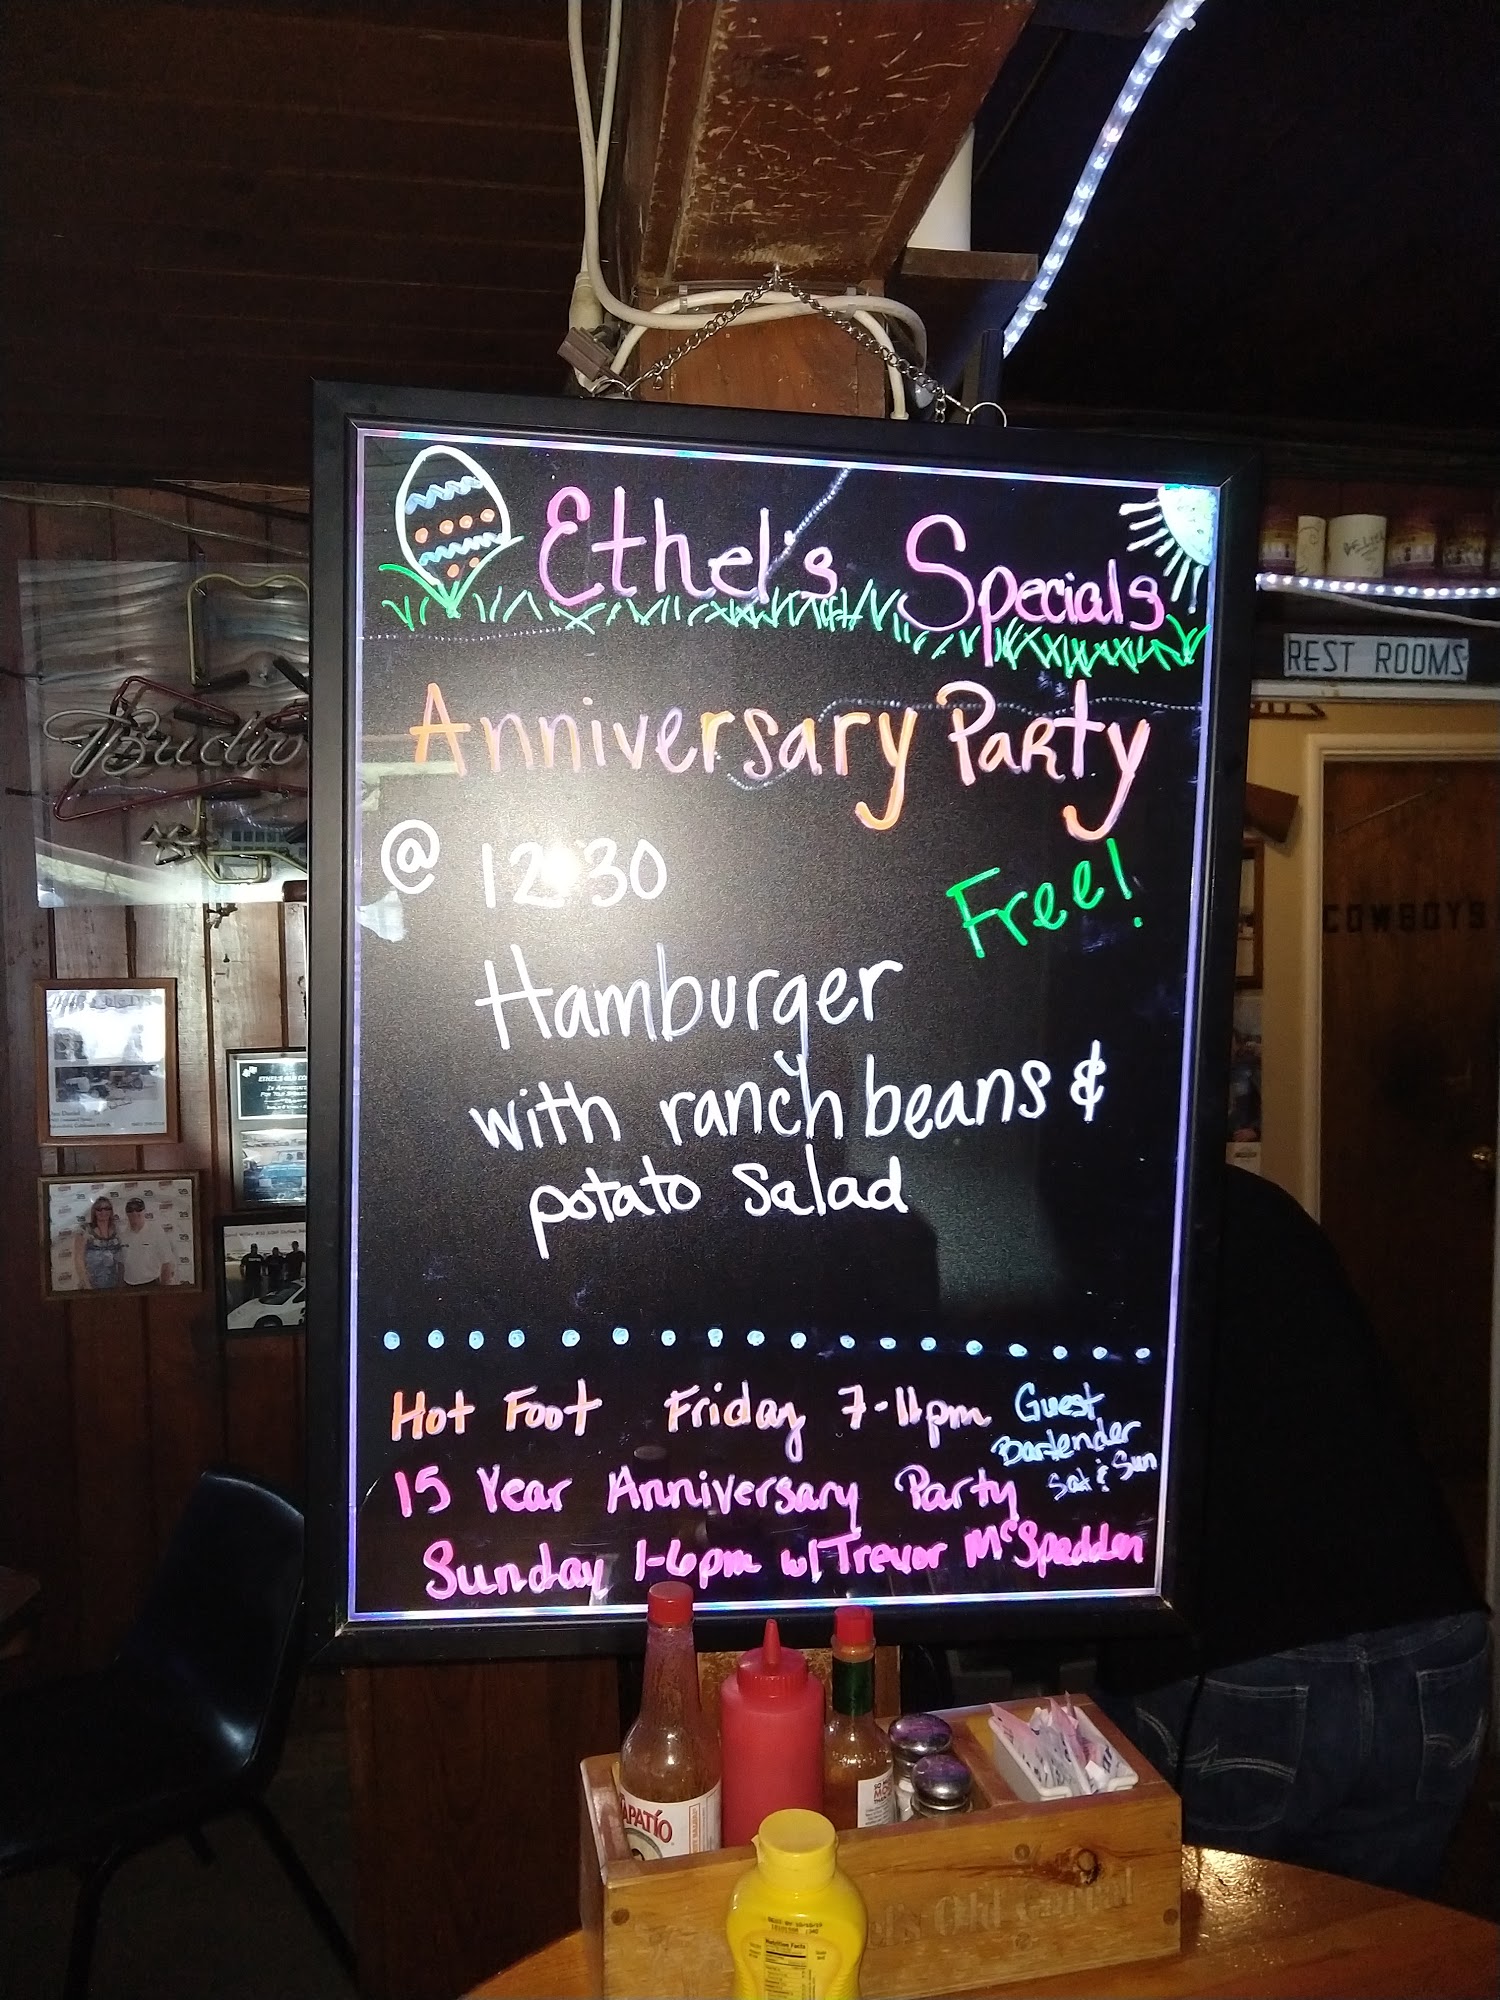 Ethel's Specials
Anniversary Party
@ 12:30
Free!
Hamburger
with ranch beans &
potato salad
Hot Foot Friday 7-11pm
Guest
Bartender
Sat & Sun
15 Year Anniversary Party
Sunday 1-6pm w/Trevor McSpadden
REST ROOMS
COWBOYS
Budw
ETHEL'S OLD CO
TAPATÍO
Nutrition Facts